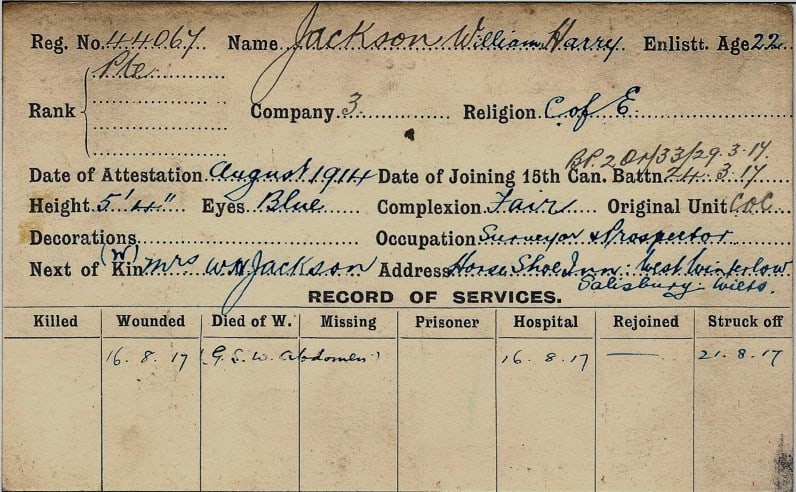 Reg. No. 44067 Name Jackson William Harry Enlistt. Age 22
Rank Pte Company 3 Religion C of E
B.P. 2 Or/33/29.3.17.
Date of Attestation August 1914 Date of Joining 15th Can. Battn. 24.3.17.
Height 5'4" Eyes Blue Complexion Fair Original Unit
Decorations Occupation Surveyor & Prospector
Next of Kin (W) Mrs W H Jackson Address Horse Shoe Inn: West Winterlow
Salisbury: Wilts.
RECORD OF SERVICES.
Killed Wounded Died of W. Missing Prisoner Hospital Rejoined Struck off
16.8.17 (G.S.W. Abdomen) 16.8.17 — 21.8.17